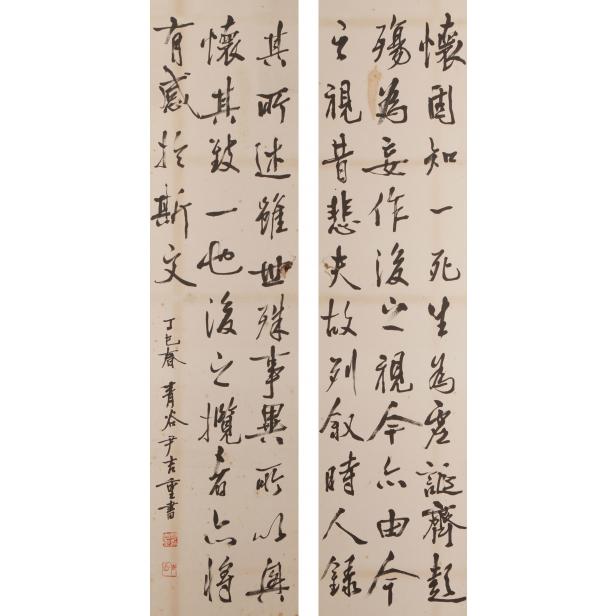 懷固知一死生為虛誕齊彭
殤為妄作後之視今亦由今
之視昔悲夫故列叙時人錄
其所述雖世殊事異所以興
懷其致一也後之攬者亦將
有感於斯文
丁巳春 青谷尹吉重書